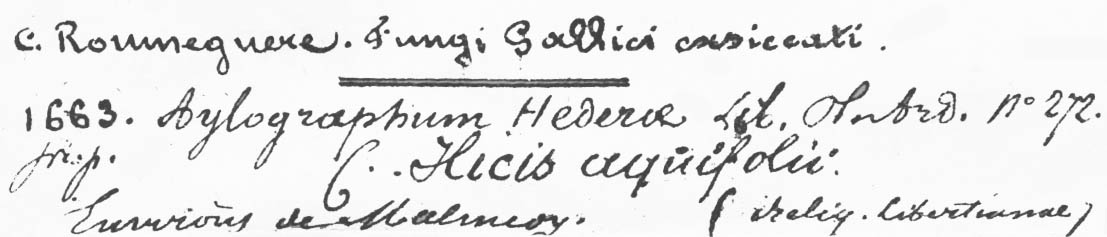 C. Roumeguere. Fungi Gallici exsiccati.
1663. Aylographum Hederæ Lib. Pl. Ard. N° 272.
fr. p. C. Ilicis aquifolii.
Environs de Malmedy. (Reliq. Libertianae)